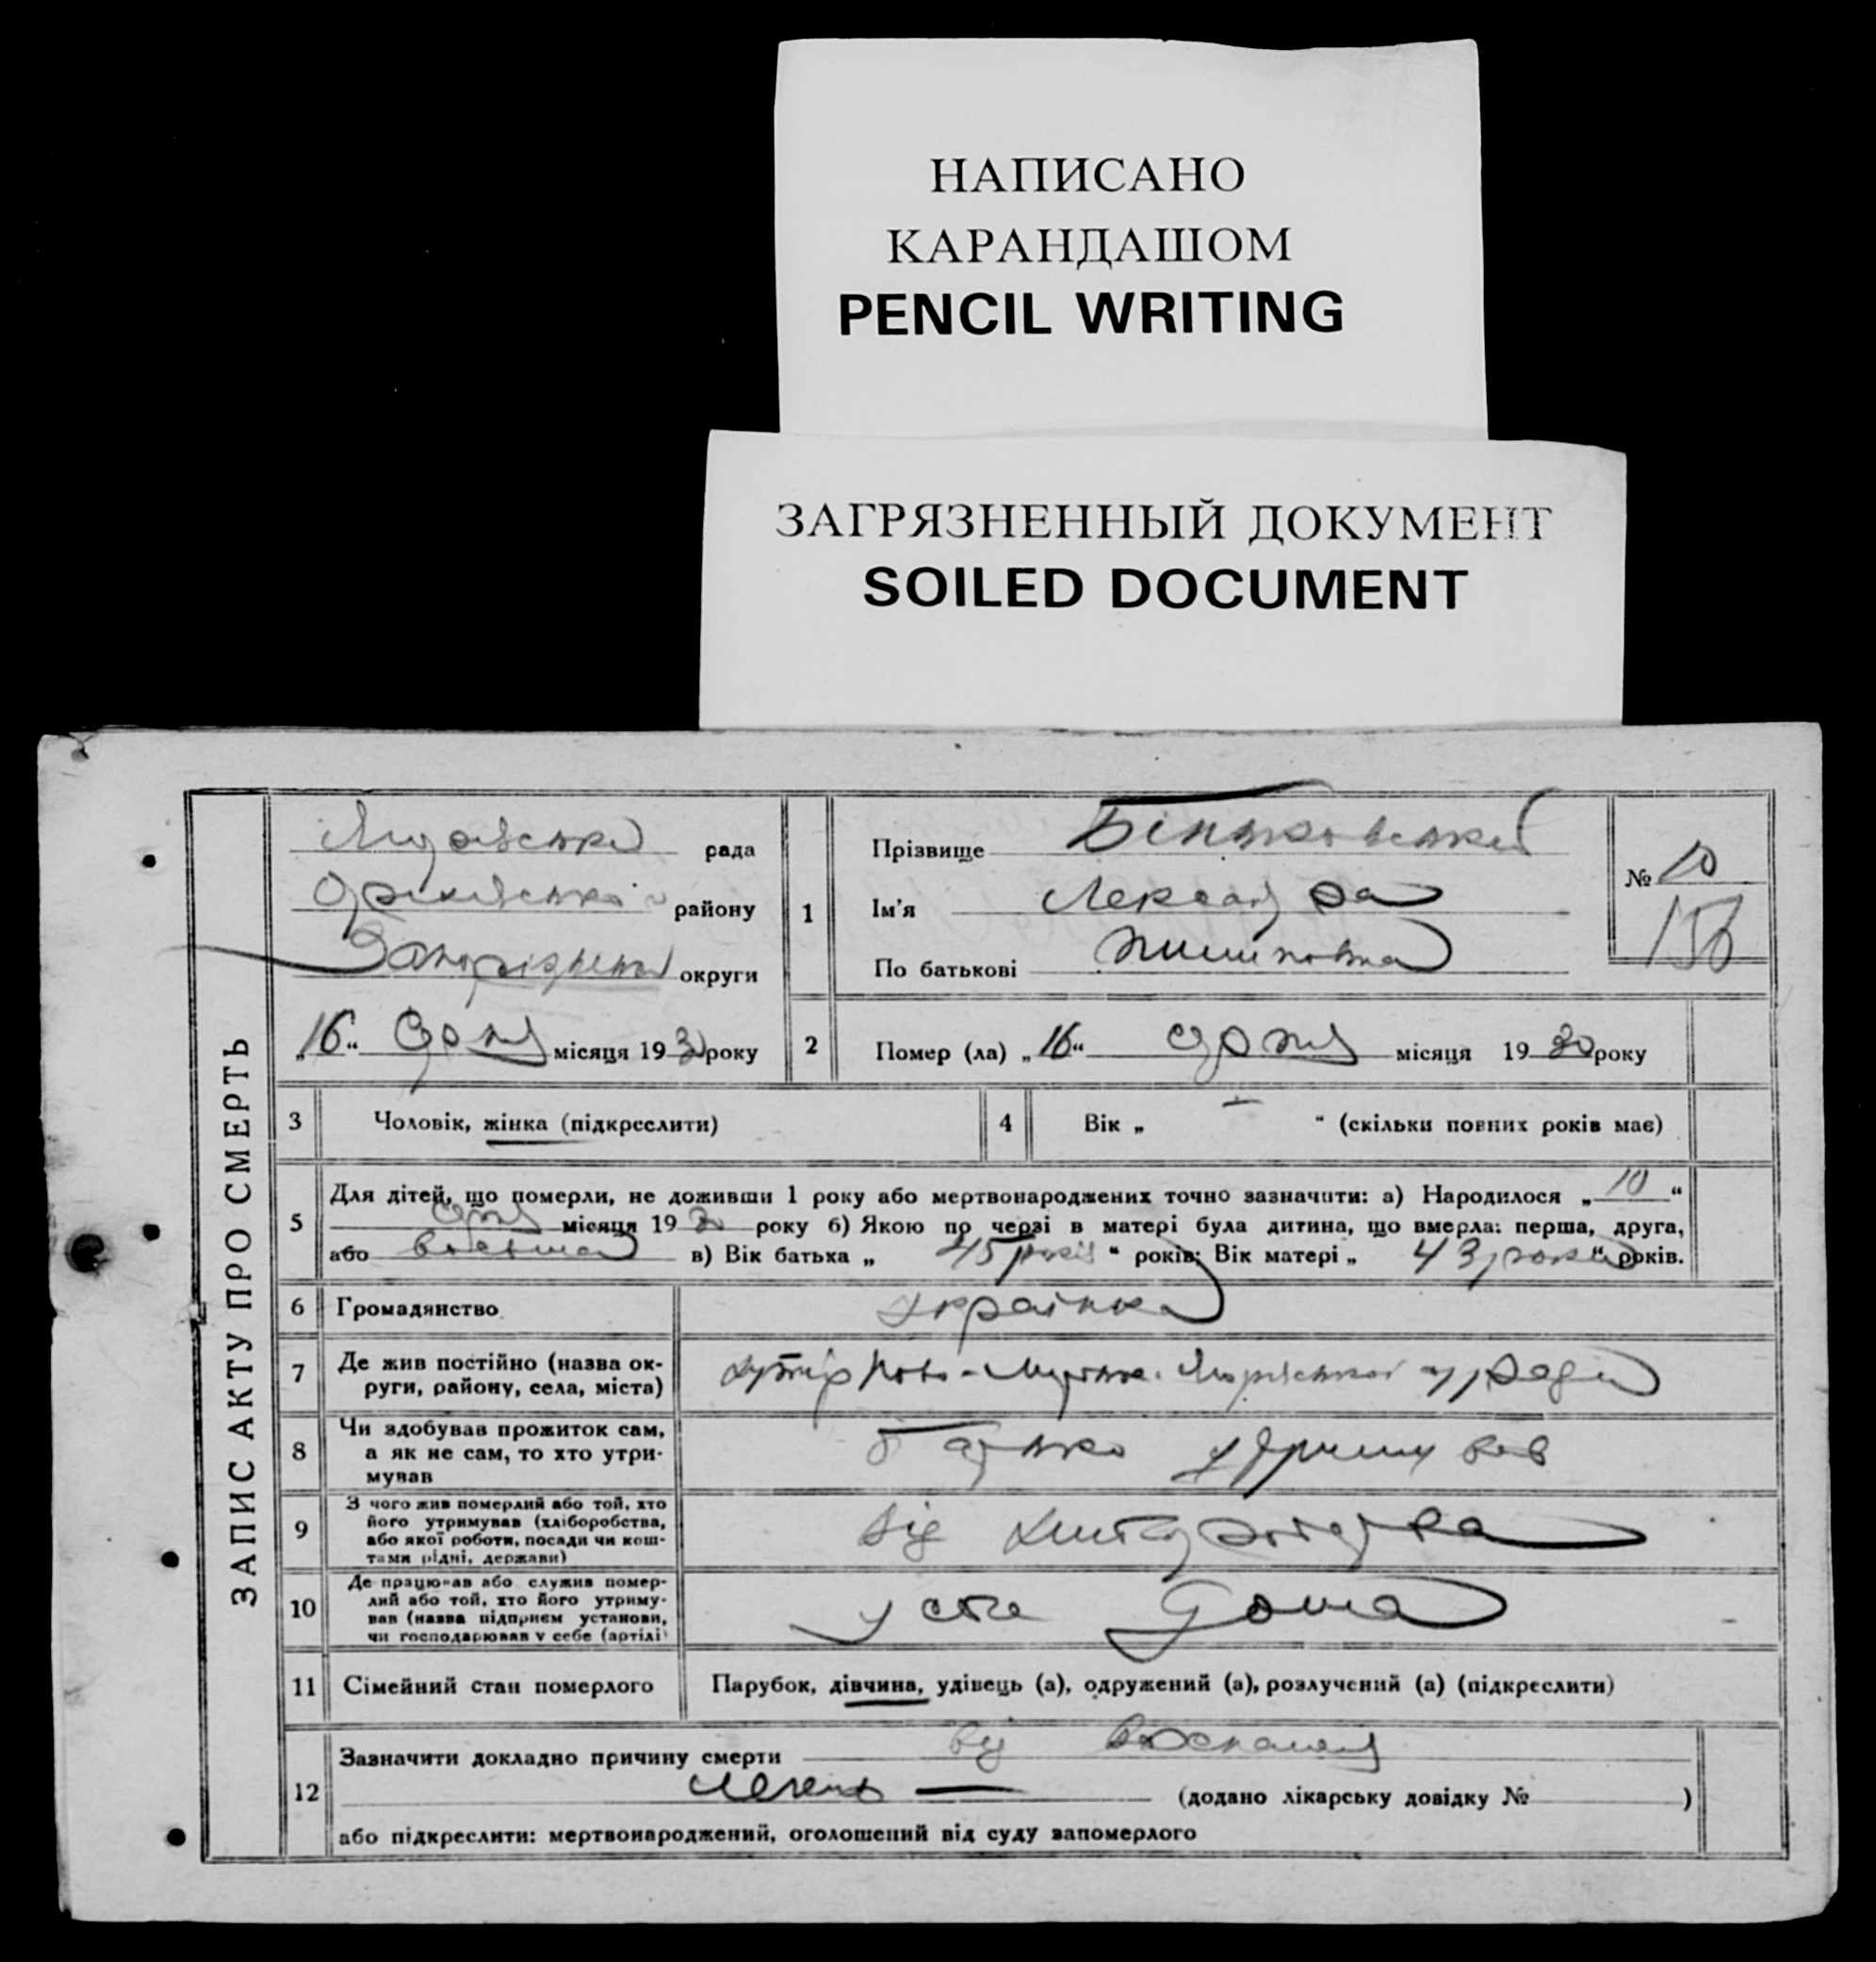 НАПИСАНО
КАРАНДАШОМ
PENCIL WRITING
ЗАГРЯЗНЕННЫЙ ДОКУМЕНТ
SOILED DOCUMENT
ЗАПИС АКТУ ПРО СМЕРТЬ
рада
району
округи
„16“ місяця 1930 року
1
Прізвище
Ім'я
По батькові
№ 10
156
2
Помер (ла) „16“ місяця 1930 року
3
Чоловік, жінка (підкреслити)
4
Вік „ — “ (скільки повних років має)
5
Для дітей, що померли, не доживши 1 року або мертвонароджених точно зазначити: а) Народилося „10“
місяця 1930 року б) Якою по черзі в матері була дитина, що вмерла: перша, друга,
або восьма в) Вік батька „45 років“ років; Вік матері „43 роки“ років.
6
Громадянство
українка
7
Де жив постійно (назва ок-
руги, району, села, міста)
хутір
8
Чи здобував прожиток сам,
а як не сам, то хто утри-
мував
Батько удержував
9
З чого жив померлий або той, хто
його утримував (хліборобства,
або якої роботи, посади чи кош-
тами рідні, держави)
від
10
Де працював або служив помер-
лий або той, хто його утриму-
вав (назва підприєм установи,
чи господарював у себе (артілі)
у себе дома
11
Сімейний стан померлого
Парубок, дівчина, удівець (а), одружений (а), розлучений (а) (підкреслити)
12
Зазначити докладно причину смерти від
легень — (додано лікарську довідку № )
або підкреслити: мертвонароджений, оголошений від суду запомерлого